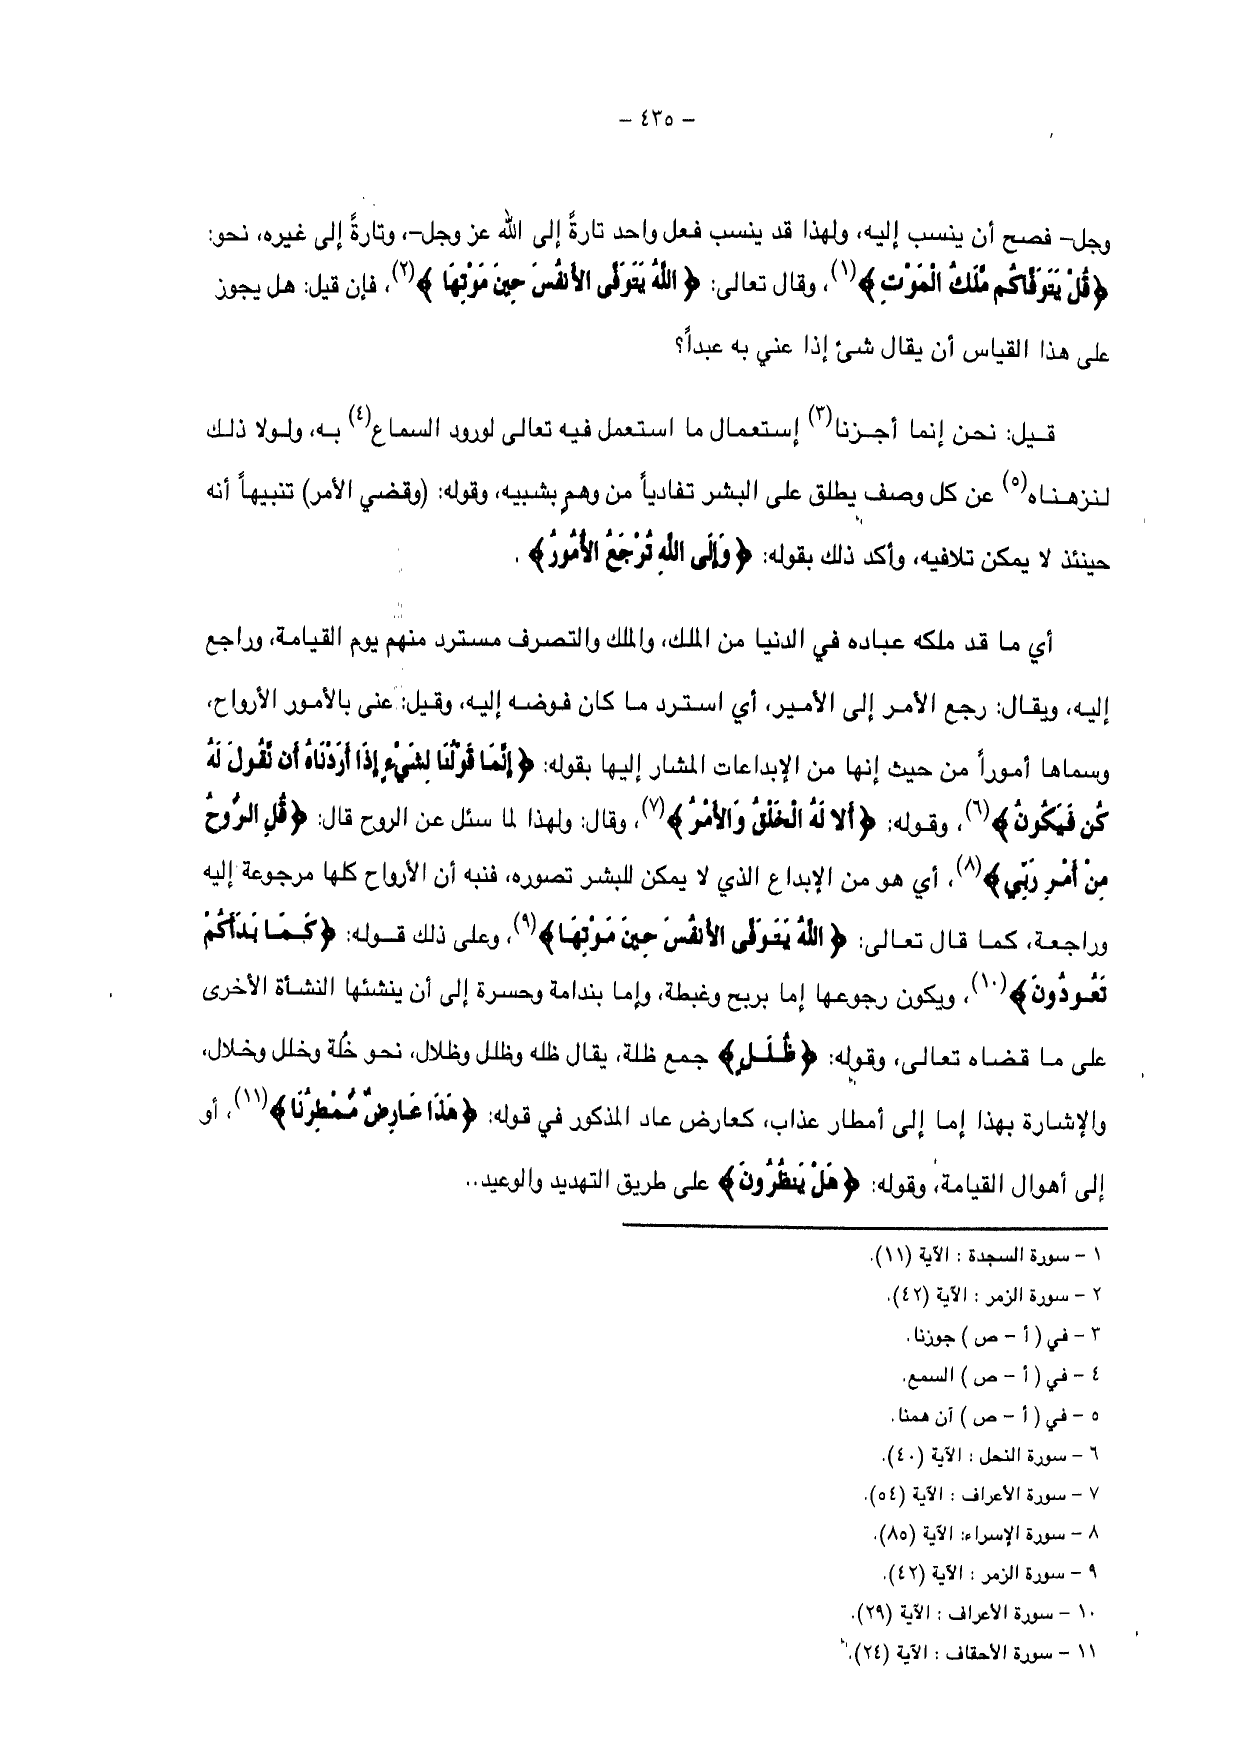 - ٤٣٥ -
وجل- فصح أن ينسب إليه، ولهذا قد ينسب فعل واحد تارةً إلى الله عز وجل-، وتارةً إلى غيره، نحو:
﴿قُلْ يَتَوَفَّاكُم مَّلَكُ الْمَوْتِ﴾(١)، وقال تعالى: ﴿اللَّهُ يَتَوَفَّى الأَنفُسَ حِينَ مَوْتِهَا﴾(٢)، فإن قيل: هل يجوز
على هذا القياس أن يقال شئ إذا عني به عبداً؟
قيل: نحن إنما أجزنا(٣) إستعمال ما استعمل فيه تعالى لورود السماع(٤) به، ولولا ذلك
لنزهناه(٥) عن كل وصف يطلق على البشر تفادياً من وهم بشبيه، وقوله: (وقضي الأمر) تنبيهاً أنه
حينئذ لا يمكن تلافيه، وأكد ذلك بقوله: ﴿وَإِلَى اللَّهِ تُرْجَعُ الأُمُورُ﴾ .
أي ما قد ملكه عباده في الدنيا من الملك، والملك والتصرف مسترد منهم يوم القيامة، وراجع
إليه، ويقال: رجع الأمر إلى الأمير، أي استرد ما كان فوضه إليه، وقيل: عنى بالأمور الأرواح،
وسماها أموراً من حيث إنها من الإبداعات المشار إليها بقوله: ﴿إِنَّمَا قَوْلُنَا لِشَيْءٍ إِذَا أَرَدْنَاهُ أَن نَّقُولَ لَهُ
كُن فَيَكُونُ﴾(٦)، وقوله: ﴿أَلا لَهُ الْخَلْقُ وَالأَمْرُ﴾(٧)، وقال: ولهذا لما سئل عن الروح قال: ﴿قُلِ الرُّوحُ
مِنْ أَمْرِ رَبِّي﴾(٨)، أي هو من الإبداع الذي لا يمكن للبشر تصوره، فنبه أن الأرواح كلها مرجوعة إليه
وراجعة، كما قال تعالى: ﴿اللَّهُ يَتَوَفَّى الأَنفُسَ حِينَ مَوْتِهَا﴾(٩)، وعلى ذلك قوله: ﴿كَمَا بَدَأَكُمْ
تَعُودُونَ﴾(١٠)، ويكون رجوعها إما بربح وغبطة، وإما بندامة وحسرة إلى أن ينشئها النشأة الأخرى
على ما قضاه تعالى، وقوله: ﴿ظُلَلٍ﴾ جمع ظلة، يقال ظله وظلل وظلال، نحو خُلة وخلل وخلال،
والإشارة بهذا إما إلى أمطار عذاب، كعارض عاد المذكور في قوله: ﴿هَذَا عَارِضٌ مُّمْطِرُنَا﴾(١١)، أو
إلى أهوال القيامة، وقوله: ﴿هَلْ يَنظُرُونَ﴾ على طريق التهديد والوعيد..
١ - سورة السجدة : الآية (١١).
٢ - سورة الزمر : الآية (٤٢).
٣ - في ( أ - ص ) جوزنا.
٤ - في ( أ - ص ) السمع.
٥ - في ( أ - ص ) آن همنا.
٦ - سورة النحل : الآية (٤٠).
٧ - سورة الأعراف : الآية (٥٤).
٨ - سورة الإسراء: الآية (٨٥).
٩ - سورة الزمر : الآية (٤٢).
١٠ - سورة الأعراف : الآية (٢٩).
١١ - سورة الأحقاف : الآية (٢٤).